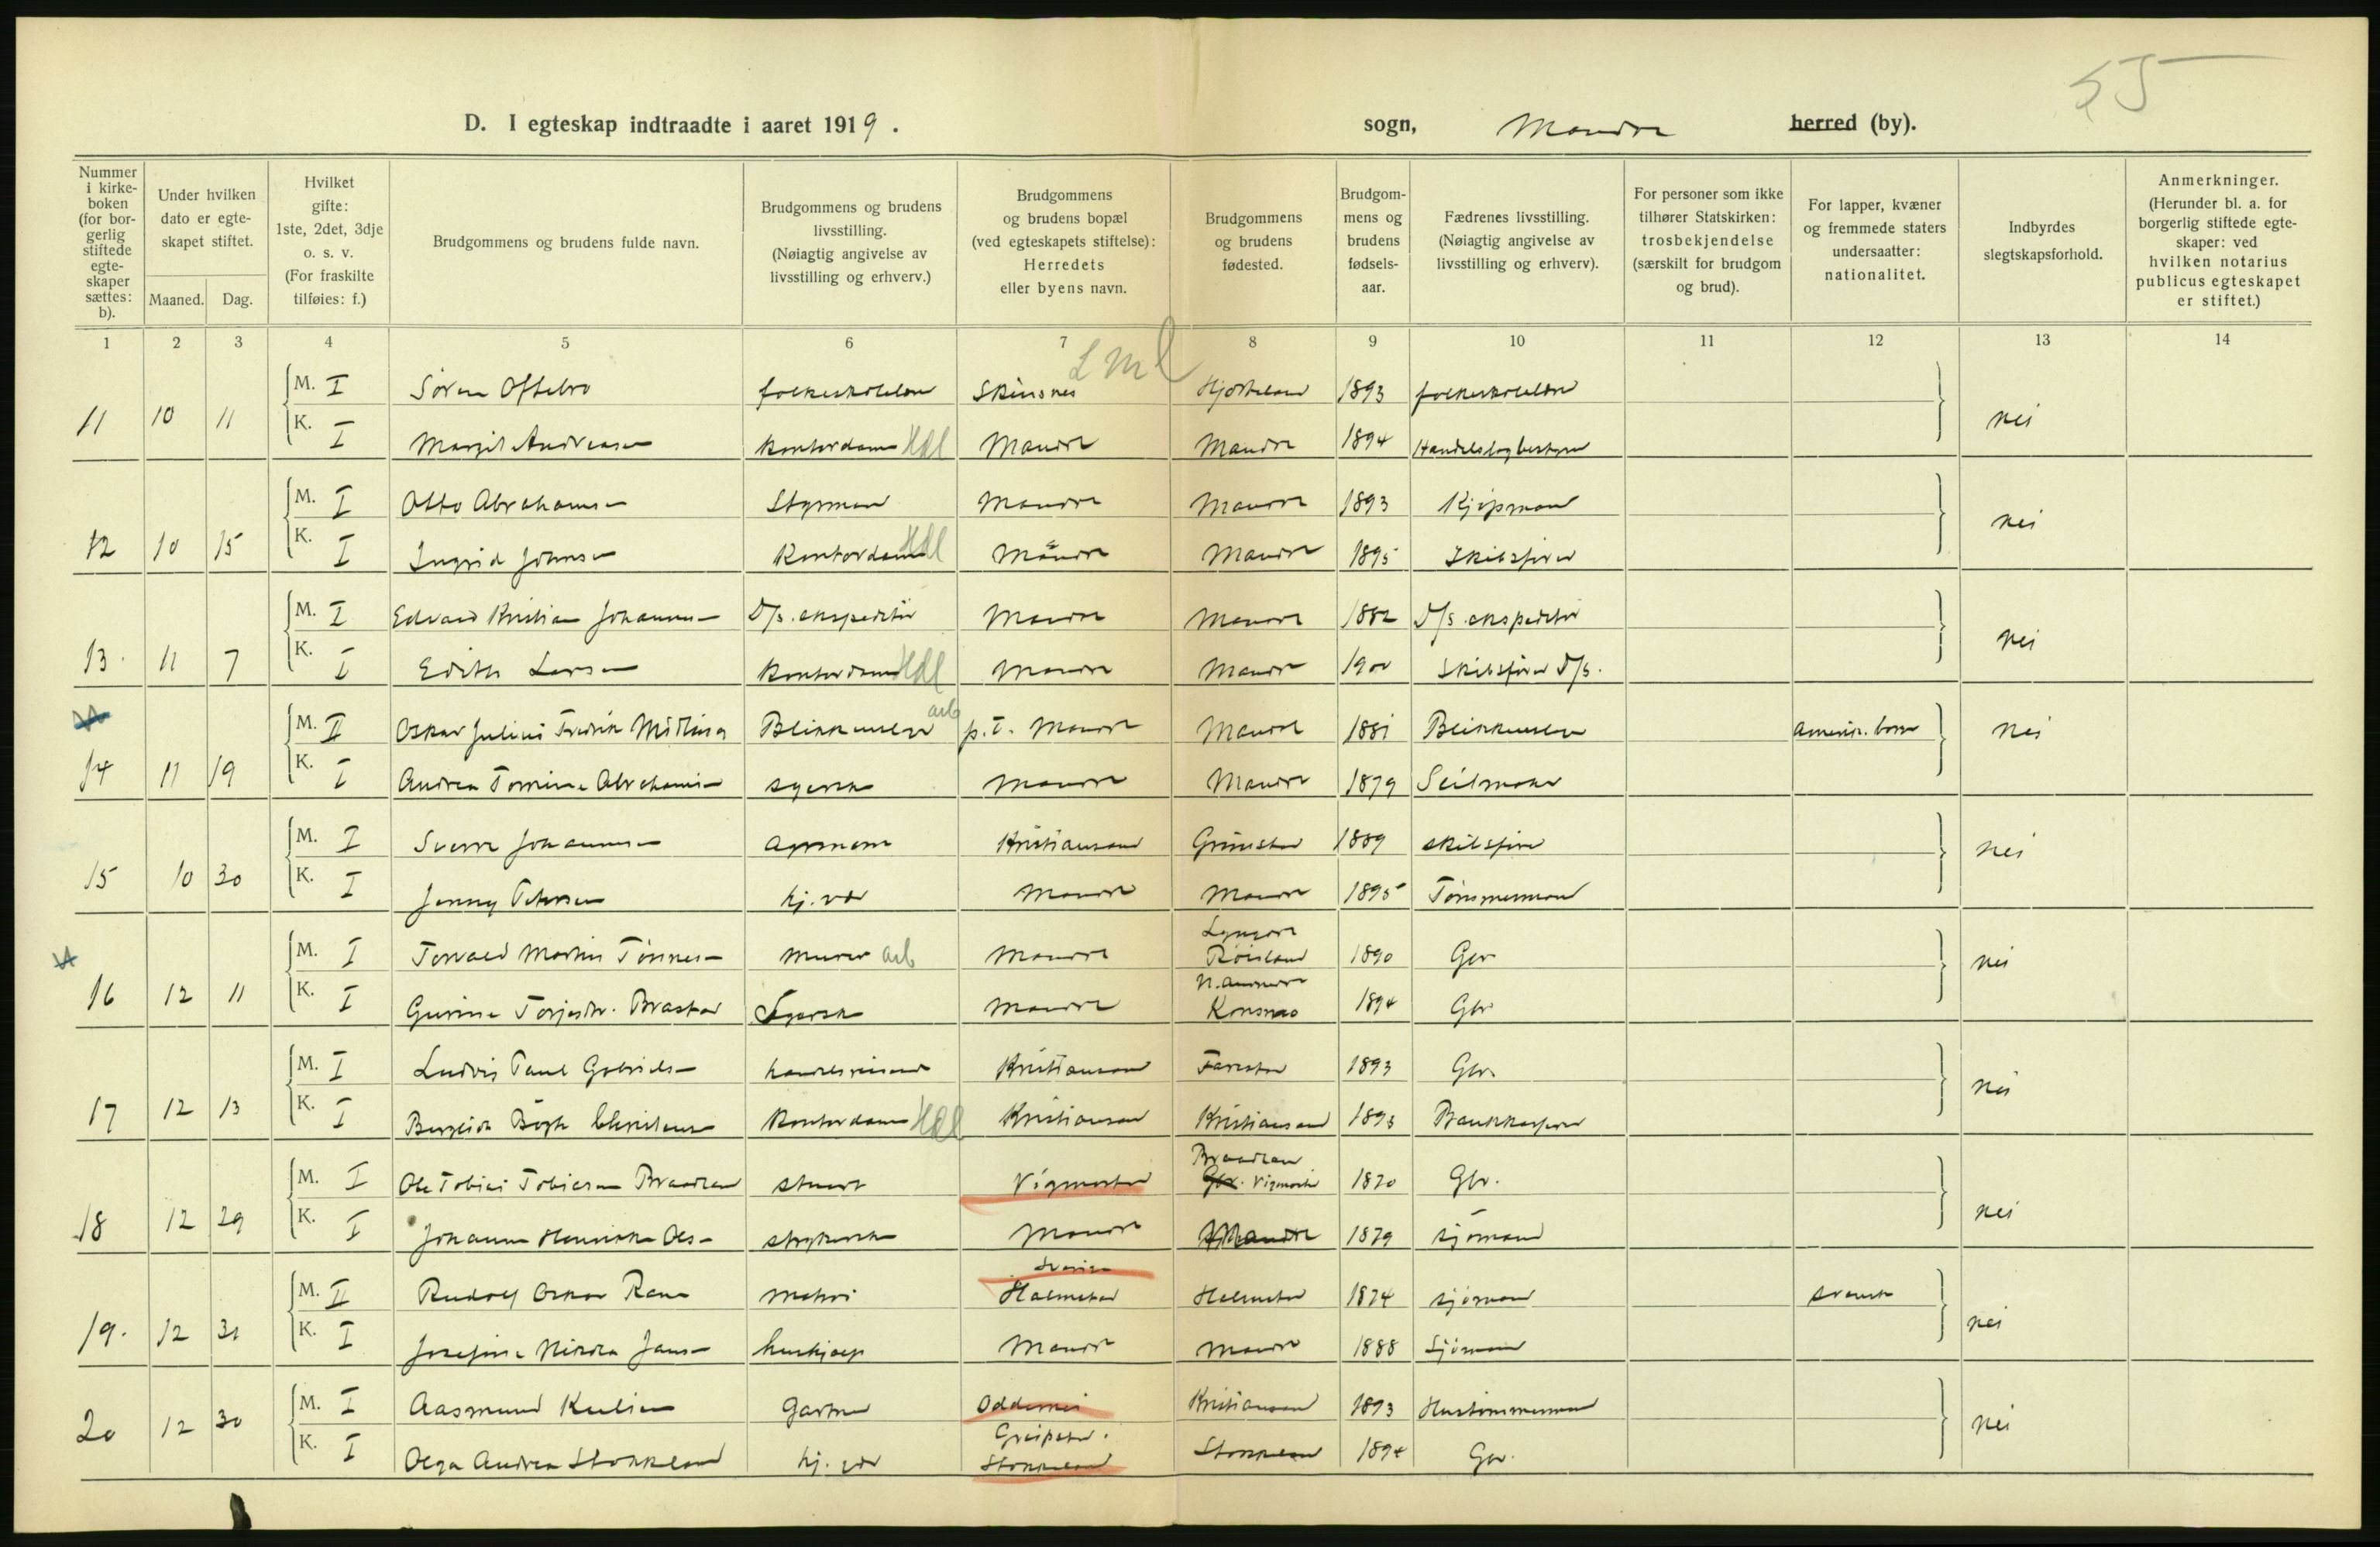 55
D. I egteskap indtraadte i aaret 1919.
sogn, Mandal herred (by).
Nummer i kirkeboken (for borgerlig stiftede egteskaper sættes: b).
Under hvilken dato er egteskapet stiftet.
Maaned. Dag.
Hvilket gifte: 1ste, 2det, 3dje o. s. v. (For fraskilte tilføies: f.)
Brudgommens og brudens fulde navn.
Brudgommens og brudens livsstilling. (Nøiagtig angivelse av livsstilling og erhverv.)
Brudgommens og brudens bopæl (ved egteskapets stiftelse): Herredets eller byens navn.
Brudgommens og brudens fødested.
Brudgommens og brudens fødselsaar.
Fædrenes livsstilling. (Nøiagtig angivelse av livsstilling og erhverv).
For personer som ikke tilhører Statskirken: trosbekjendelse (særskilt for brudgom og brud).
For lapper, kvæner og fremmede staters undersaatter: nationalitet.
Indbyrdes slegtskapsforhold.
Anmerkninger. (Herunder bl. a. for borgerlig stiftede egteskaper: ved hvilken notarius publicus egteskapet er stiftet.)
1 2 3 4 5 6 7 8 9 10 11 12 13 14
11 10 11 M. I Søren Oftebro folkeskolelærer Skinsnes 1893 folkeskolelærer nei
K. I Margit Andreassen kontordame Hdl Mandal Mandal 1894
12 10 15 M. I Otto Abrahamsen Styrmand Mandal Mandal 1893 Kjøpmand nei
K. I Ingrid Johnsen Kontordame Hdl Mandal Mandal 1895 Skibsfører
13 11 7 M. I Edvard Kristian Johannesen D/s. ekspeditør Mandal Mandal 1882 D/s. ekspeditør nei
K. I Edith Larsen kontordame Hdl Mandal Mandal 1900 Skibsfører D/s.
14 11 19 M. II Oskar Julius Fredrik Blikkenslager arb p.t. Mandal Mandal 1881 Blikkenslager amerik. borger nei
K. I Andrea Tomine Abrahamsen syerske Mandal Mandal 1879 Seilmaker
15 10 30 M. I Sverre Johannesen Kristiansand Grimstad 1889 skibsfører nei
K. I Jenny Petersen hj. vær Mandal Mandal 1895 Tømmermand
16 12 11 M. I Torvald Martin Tønnesen murer arb Mandal Lyngdal Røisland 1890 Gbr nei
K. I Gurine Torjesdtr. Brastad Syerske Mandal 1894 Gbr
17 12 13 M. I Ludvig Paul Gabrielsen handelsreisende Kristiansand Farestad 1893 Gbr. nei
K. I Bergliot kontordame Hdl Kristiansand Kristiansand 1893 Bankkasserer
18 12 29 M. I Ole Tobias Tobiassen Braadland stuert Vigmostad Braadland Gbr. Vigmostad 1870 Gbr. nei
K. I Johanne Henrikke Olsen strykerske Mandal Mandal 1879 sjømand
19. 12 31 M. II Rudolf Oskar Sverige Halmstad Halmstad 1874 sjømand svensk nei
K. I Josefine Jansen hushjælp Mandal Mandal 1888 Sjømand
20 12 30 M. I Aasmund Gartner Oddernes Kristiansand 1893 Hustømmermand nei
K. I Olga Andrea Stokkeland hj. vær Greipstad. Stokkeland Stokkeland 1894 Gbr.